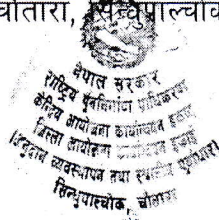 चौतारा, सिन्धुपाल्चोक
नेपाल सरकार
राष्ट्रिय पुनर्निर्माण प्राधिकरण
केन्द्रिय आयोजना कार्यान्वयन इकाई
जिल्ला आयोजना कार्यान्वयन इकाई
(अनुदान व्यवस्थापन तथा स्थानीय पूर्वाधार)
सिन्धुपाल्चोक, चौतारा